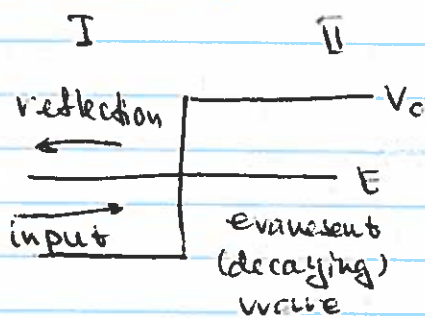 I II
reflection V₀
E
input evanesent
(decaying)
wave